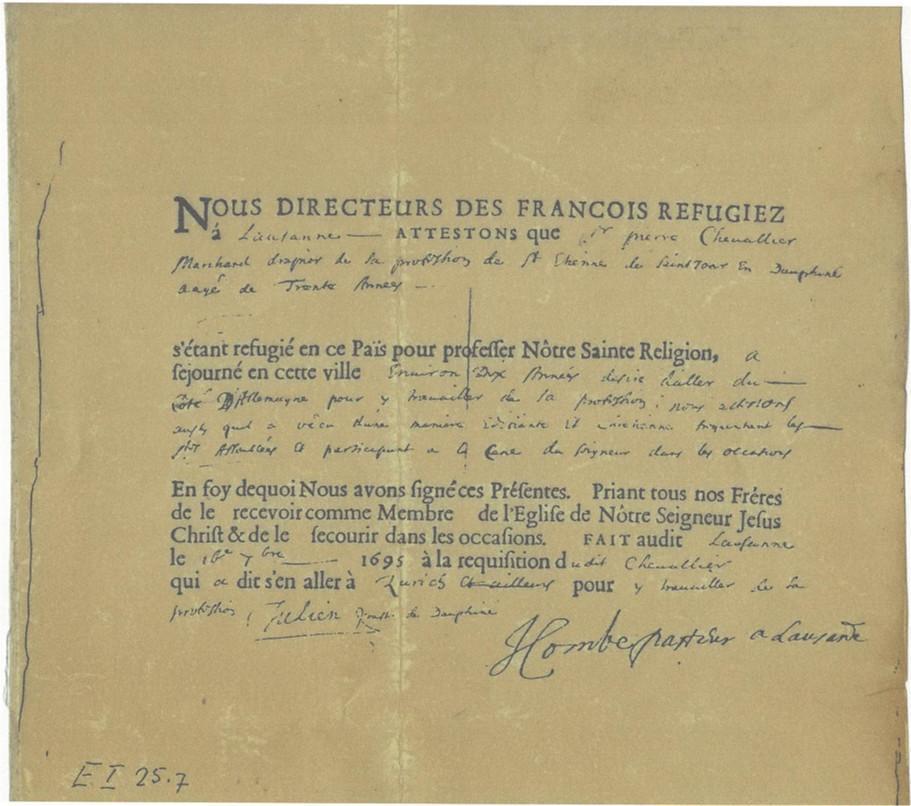 NOUS DIRECTEURS DES FRANCOIS REFUGIEZ
à Lausanne — ATTESTONS que Sr pierre Cheuallier
Marchand drapier de sa profession de St Etienne de En Dauphiné
aagé de Trente Années —
s'étant refugié en ce Païs pour professer Nôtre Sainte Religion, a
sejourné en cette ville Environ Dix Années desire daller du —
Coté D'Allemagne pour y trauailler de sa profession; nous attestons
quil a vécu dune maniere Edifiante Et frequentant les —
Stes Assemblées Et participant a la Cene du Seigneur dans les occasions
En foy dequoi Nous avons signé ces Présentes. Priant tous nos Fréres
de le recevoir comme Membre de l'Eglise de Nôtre Seigneur Jesus
Christ & de le secourir dans les occasions. FAIT audit Lausanne
le 16e 7bre — 1695 à la requisition dudit Cheuallier
qui a dit s'en aller à Zurich & ailleurs pour y trauailler de sa
profession Julien de Dauphiné
Combe pasteur a Lausanne
E I 25.7